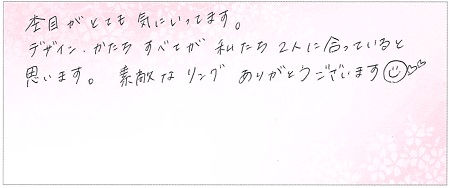 杢目がとても気にいってます。
デザイン・かたちすべてが私たち2人に合っていると
思います。素敵なリングありがとうございます